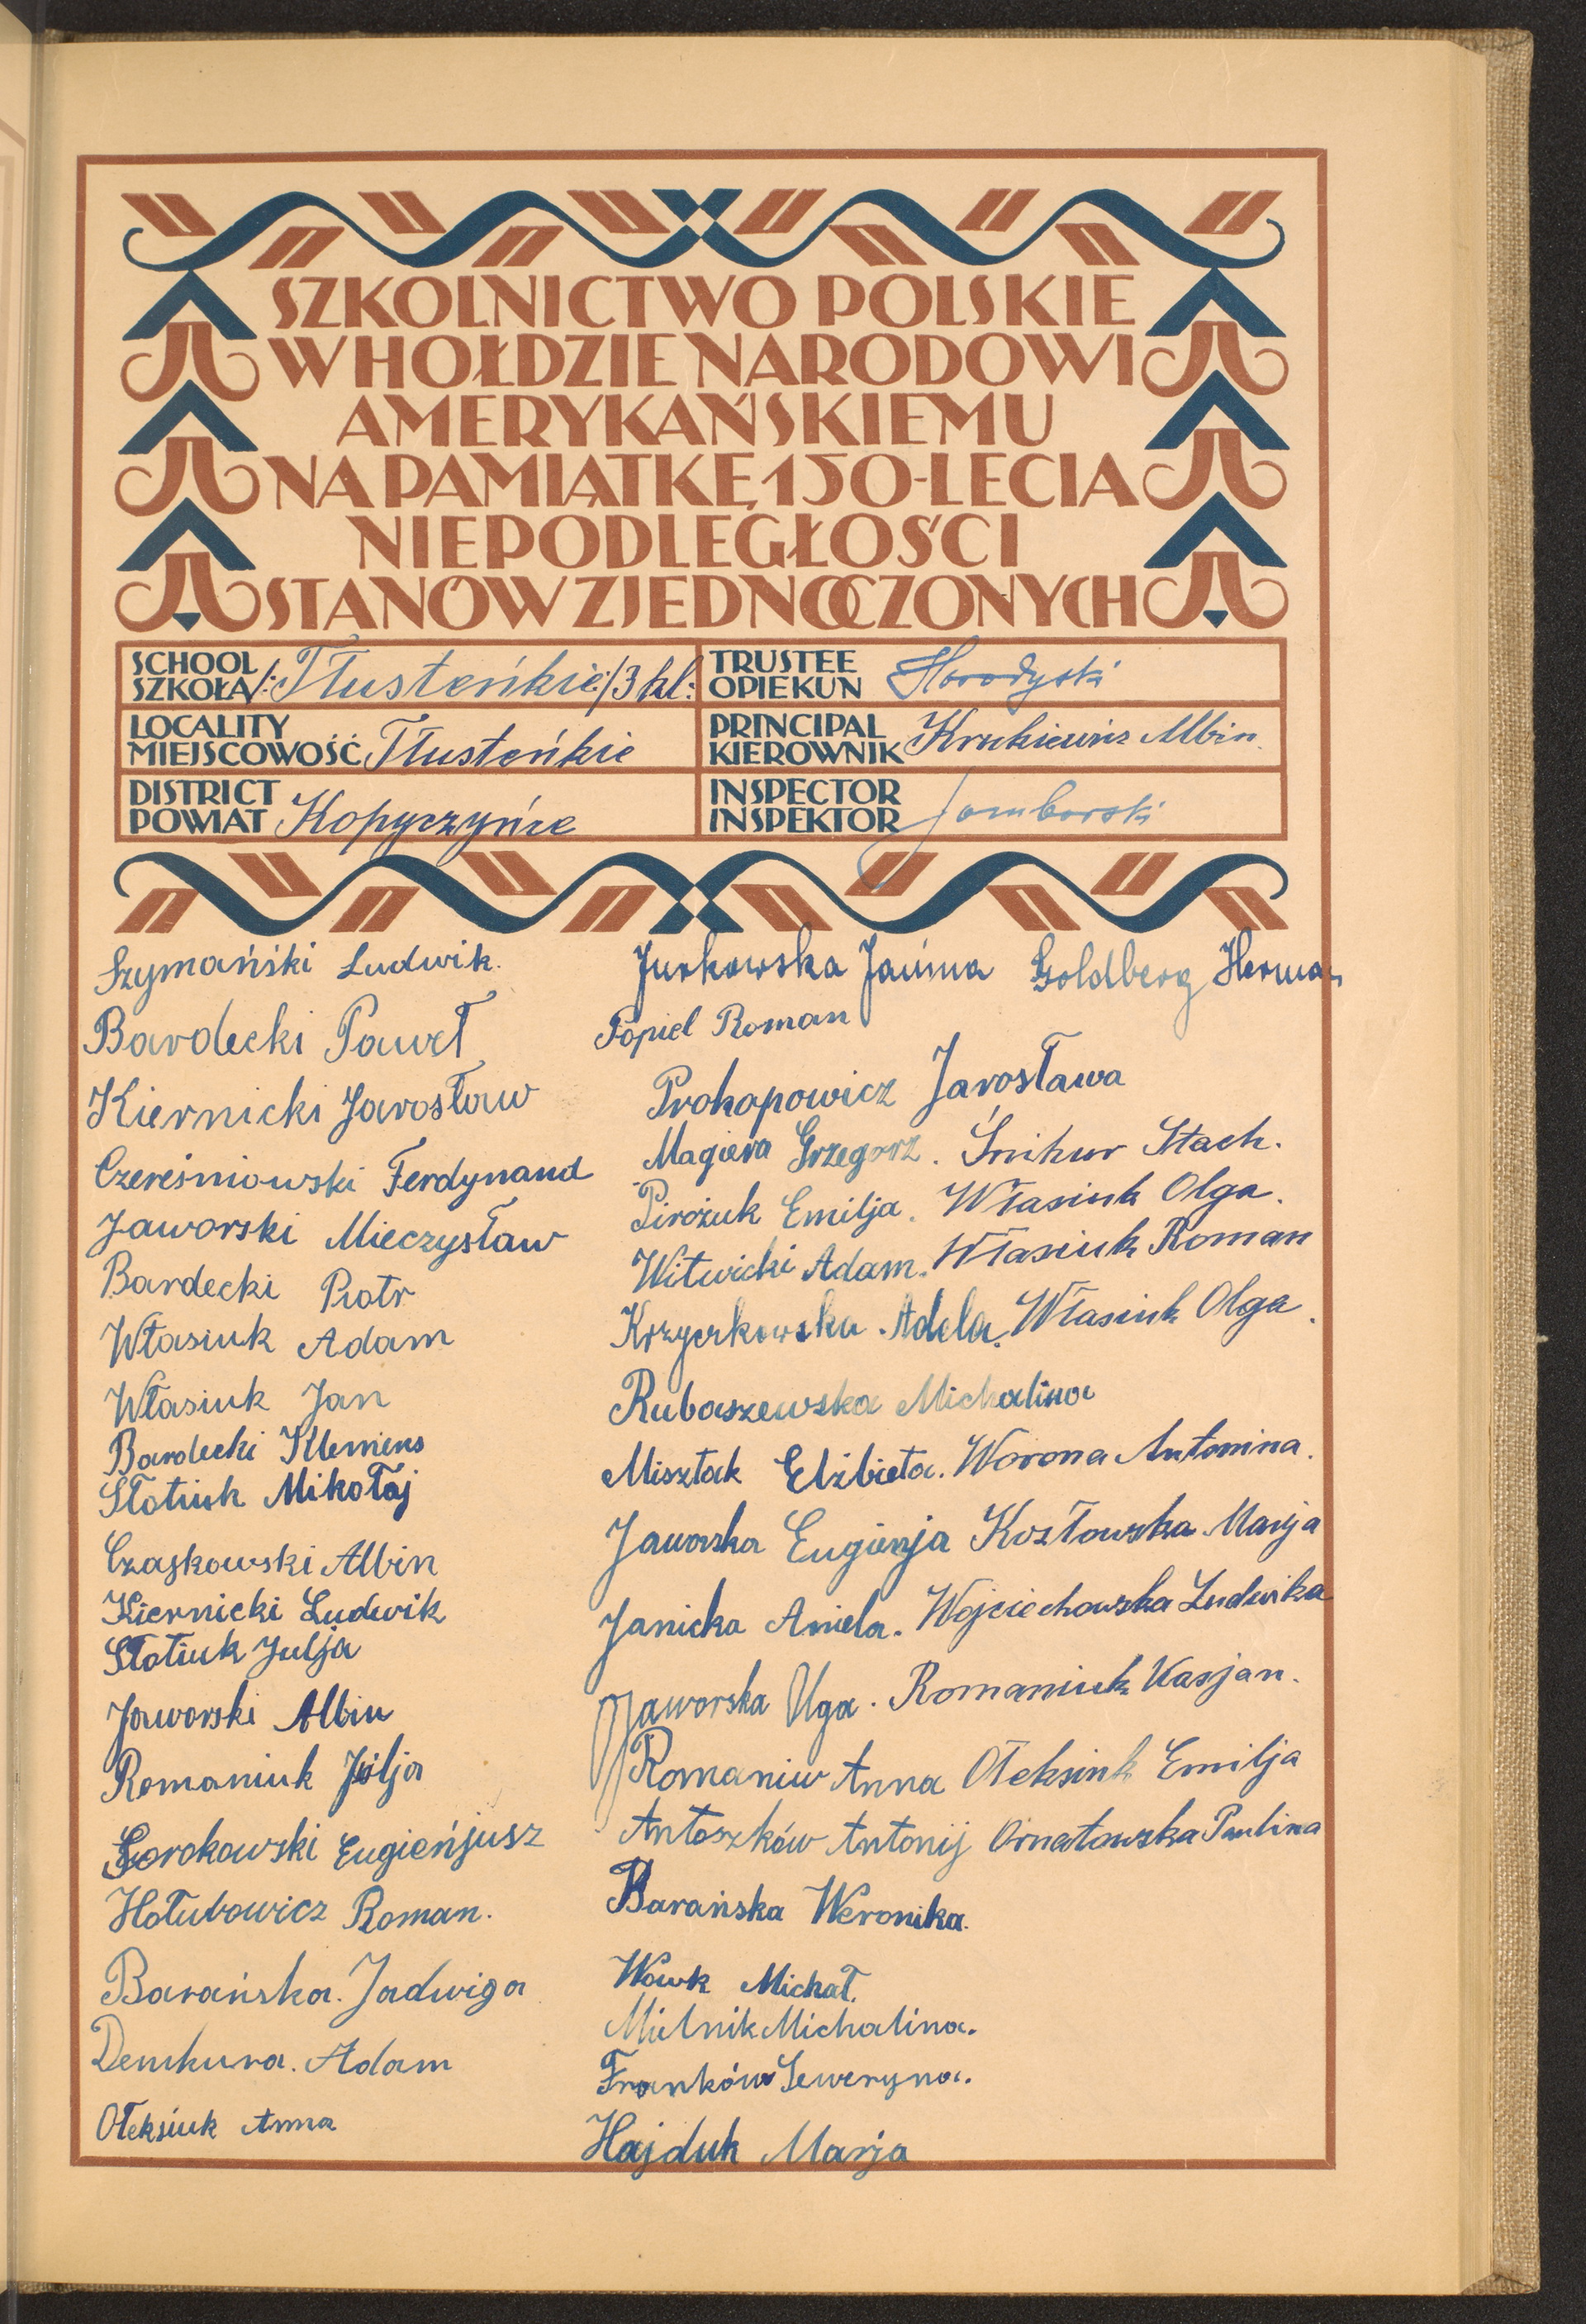 SZKOLNICTWO POLSKIE
W HOŁDZIE NARODOWI
AMERYKAŃSKIEMU
NA PAMIĄTKĘ 150-LECIA
NIEPODLEGŁOŚCI
STANÓW ZJEDNOCZONYCH
SCHOOL
SZKOŁA /:Tłusteńkie:/3 kl:
TRUSTEE
OPIEKUN Horodyski
LOCALITY
MIEJSCOWOŚĆ Tłusteńkie
PRINCIPAL
KIEROWNIK Krukiewicz Albin
DISTRICT
POWIAT Kopyczyńce
INSPECTOR
INSPEKTOR Jamborski
Szymański Ludwik.
Bardecki Paweł
Kiernicki Jarosław
Czereśniowski Ferdynand
Jaworski Mieczysław
Bardecki Piotr
Własiuk Adam
Własiuk Jan
Bardecki Klemens
Słotiuk Mikołaj
Czajkowski Albin
Kiernicki Ludwik
Słotiuk Julja
Jaworski Albin
Romaniuk Julja
Sorokowski Eugieńjusz
Hołubowicz Roman.
Barańska. Jadwiga
Demkura. Adam
Ołeksiuk Anna
Jurkowska Janina Goldberg Herman
Popiel Roman
Prokopowicz Jarosława
Magiera Grzegorz. Śnihur Stach.
Pirożuk Emilja. Własiuk Olga.
Witwicki Adam. Własiuk Roman
Krzyczkowska Adela. Własiuk Olga.
Rubaszewska Michalina
Misztak Elżbieta. Worona Antonina.
Jaworska Eugienja Kozłowska Marja
Janicka Aniela. Wojciechowska Ludwika
Jaworska Olga. Romaniuk Kasjan.
Romaniw Anna Ołeksiuk Emilja
Antoszków Antonij Ornatowska Paulina
Barańska Weronika.
Wowk Michał.
Mielnik Michalina.
Franków Seweryna.
Hajduk Marja